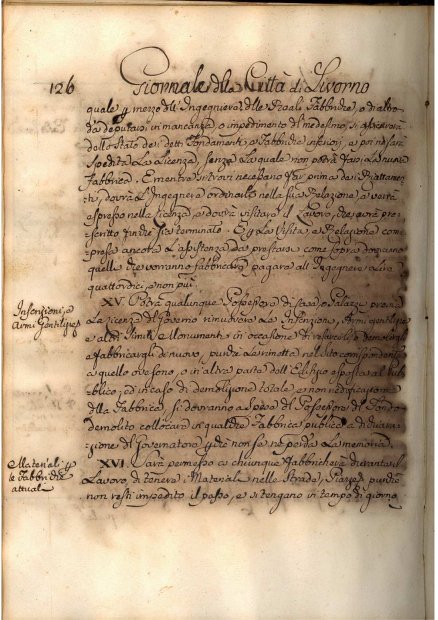 126 Giornale della Città di Livorno
quale p mezzo dell'Ingegniere delle Reali Fabbriche, o di altro
da deputarsi in mancanza, o impedimento del medesimo, si
dello Stato dei detti Fondamenti, e Fabbriche inferiori, e poi ne sarà
spedita La Licenza, senza La quale non potrà farsi La nuova
Fabbrica. E mentre si trovi necessario far prima dei Riattamen-
ti, dovrà L'Ingegnere ordinarli nella sua Relazione, e verrà
espresso nella licenza, e dovrà visitare il Lavoro, che avrà pre-
scritto finché sia terminato. E p La Visita, e Relazione com-
presa ancora L'assistenza da prestarsi come sopra dovranno
quelli che vorranno fabbricare pagare all'Ingegnere Lire
quattordici, e non più.
XV. Potrà qualunque Possessore di Case, o Palazzi previa
La licenza del Governo rimuovere La Inscrizione, Armi gentilizie
Inscrizioni, e
Armi Gentilizie
e altri simili Monumenti in occasione di
e fabbricargli di nuovo, purché La rimetta nel sito corrispondente
a quello ov'esono, o in altra parte dell'Edifizio esposta al Pub-
blico; ed in caso di demolizione totale, e non riedificazione
della Fabbrica, si dovranno a spese del Possessore del Fondo
demolito collocare in qualche Fabbrica pubblica a dichiara-
zione del Governatore p che non se ne perda La memoria.
XVI. Sarà permesso a chiunque fabbricherà durante il
Materiali p
le Fabbriche
attuali
Lavoro di tenere i Materiali nelle Strade, Piazze, purché
non resti impedito il passo, e si tengano in tempo di giorno